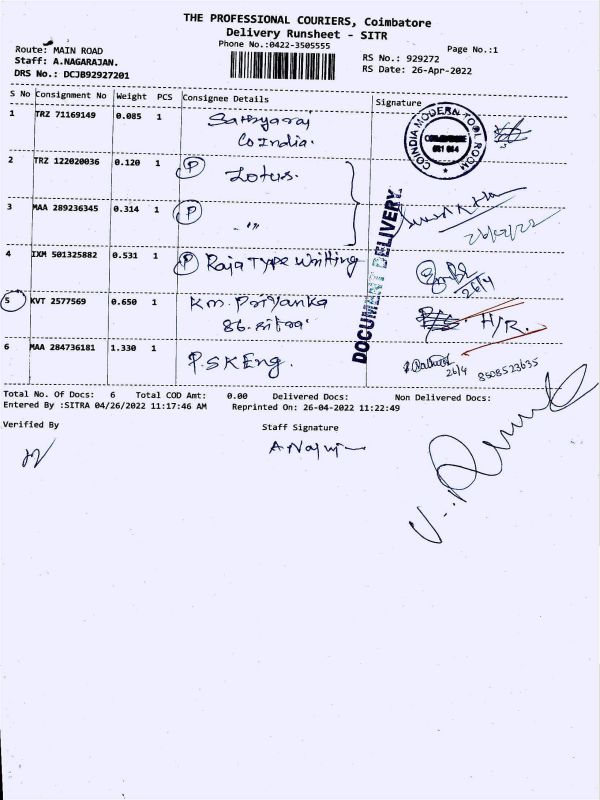 THE PROFESSIONAL COURIERS, Coimbatore
Delivery Runsheet - SITR
Phone No.:0422-3505555
Page No.:1
Route: MAIN ROAD
Staff: A.NAGARAJAN.
DRS No.: DCJB92927201
RS No.: 929272
RS Date: 26-Apr-2022
S No Consignment No Weight PCS Consignee Details Signature
1 TRZ 71169149 0.085 1 Sathyaraj
CoIndia.
COINDIA MODERN TOOL ROOM
2 TRZ 122020036 0.120 1 P Lotus.
3 MAA 289236345 0.314 1 P - "
DOCUMENT DELIVERY
4 IXM 501325882 0.531 1 P Raja Type Writting
26/4
5 KVT 2577569 0.650 1 Km. Priyanka
86. sitra. H/R.
6 MAA 284736181 1.330 1 P.S.K Eng. 26/4 8508523635
Total No. Of Docs: 6 Total COD Amt: 0.00 Delivered Docs: Non Delivered Docs:
Entered By :SITRA 04/26/2022 11:17:46 AM Reprinted On: 26-04-2022 11:22:49
Verified By Staff Signature